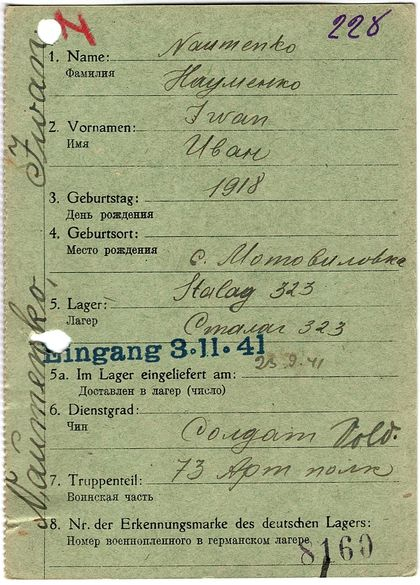 228
Naumenko, Iwan
1. Name: Naumenko
Фамилия Науменко
2. Vornamen: Iwan
Имя Иван
3. Geburtstag: 1918
День рождения
4. Geburtsort:
Место рождения с. Мотовиловка
Stalag 323
5. Lager:
Лагер Сталаг 323
Eingang 3.11.41
23.9.41
5a. Im Lager eingeliefert am:
Доставлен в лагер (число)
6. Dienstgrad:
Чин Солдат Sold.
7. Truppenteil: 73 Арт полк
Воинская часть
8. Nr. der Erkennungsmarke des deutschen Lagers:
Номер военнопленного в германском лагере
8160